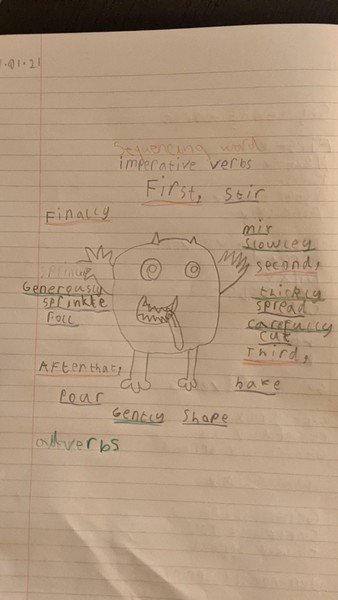 .01.21
Sequencing word
imperative verbs
First, Stir
Finally
mix
slowley
second,
Generously
sprinkle
Roll
thickly
spread
carefully
cut
Third,
After that,
bake
Pour
Gently shape
adverbs